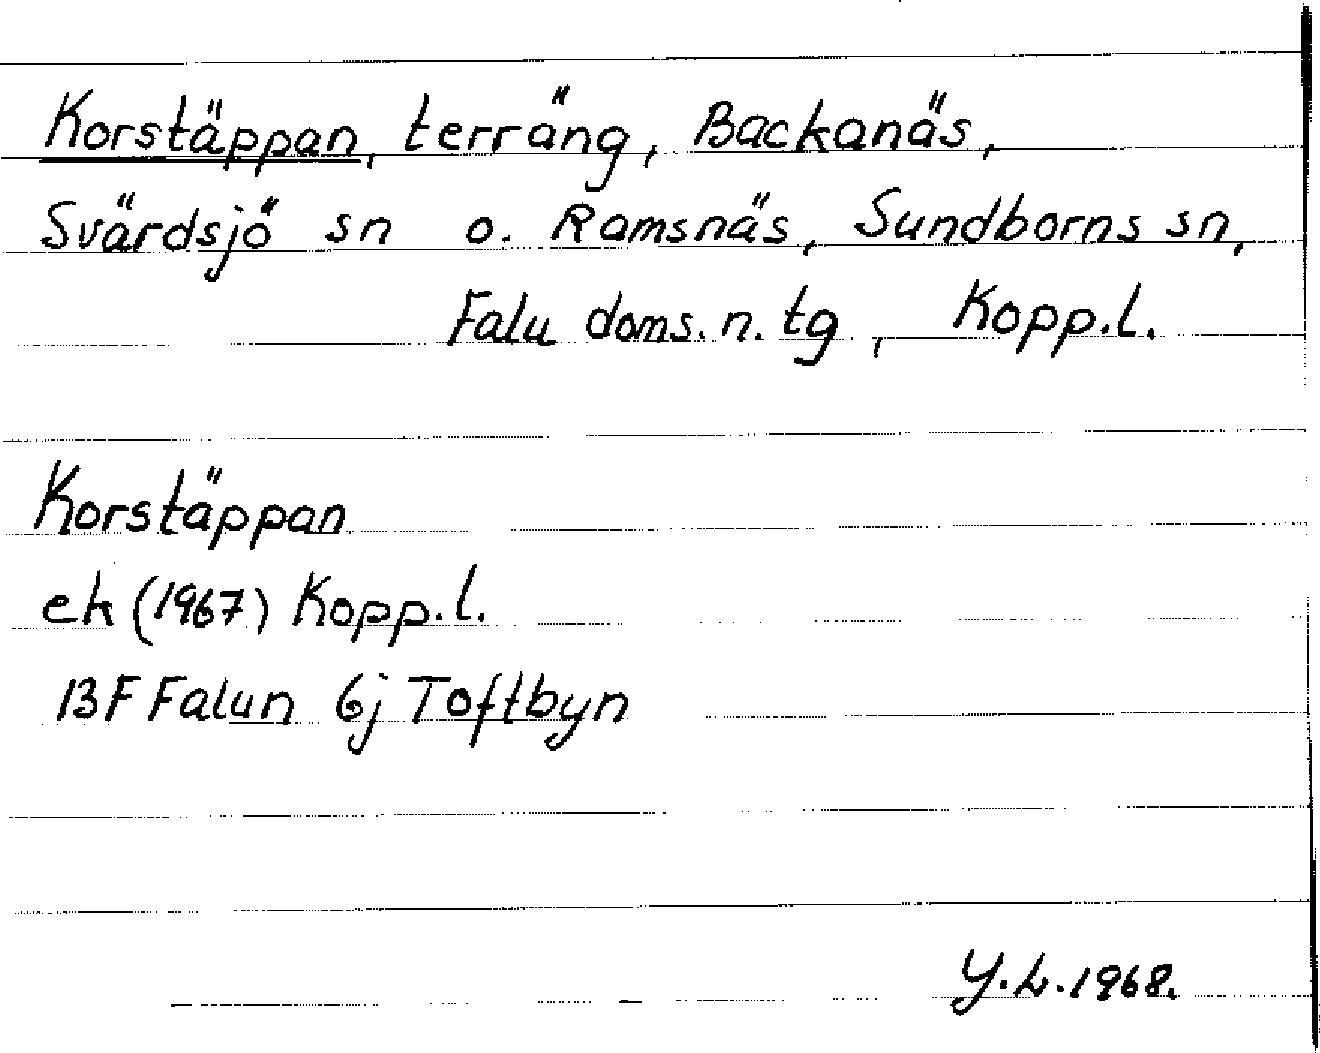 Korstäppan, terräng, Backanäs,
Svärdsjö sn o. Ramsnäs, Sundborns sn,
Falu doms. n. tg, Kopp.l.
Korstäppan
ek (1967) Kopp.l.
13F Falun 6j Toftbyn
Y.L.1968.